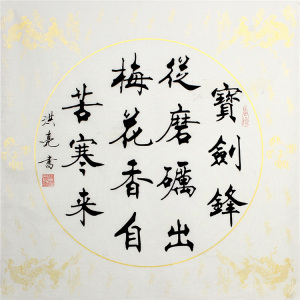 寶劍鋒
從磨礪出
梅花香自
苦寒来
洪亮書